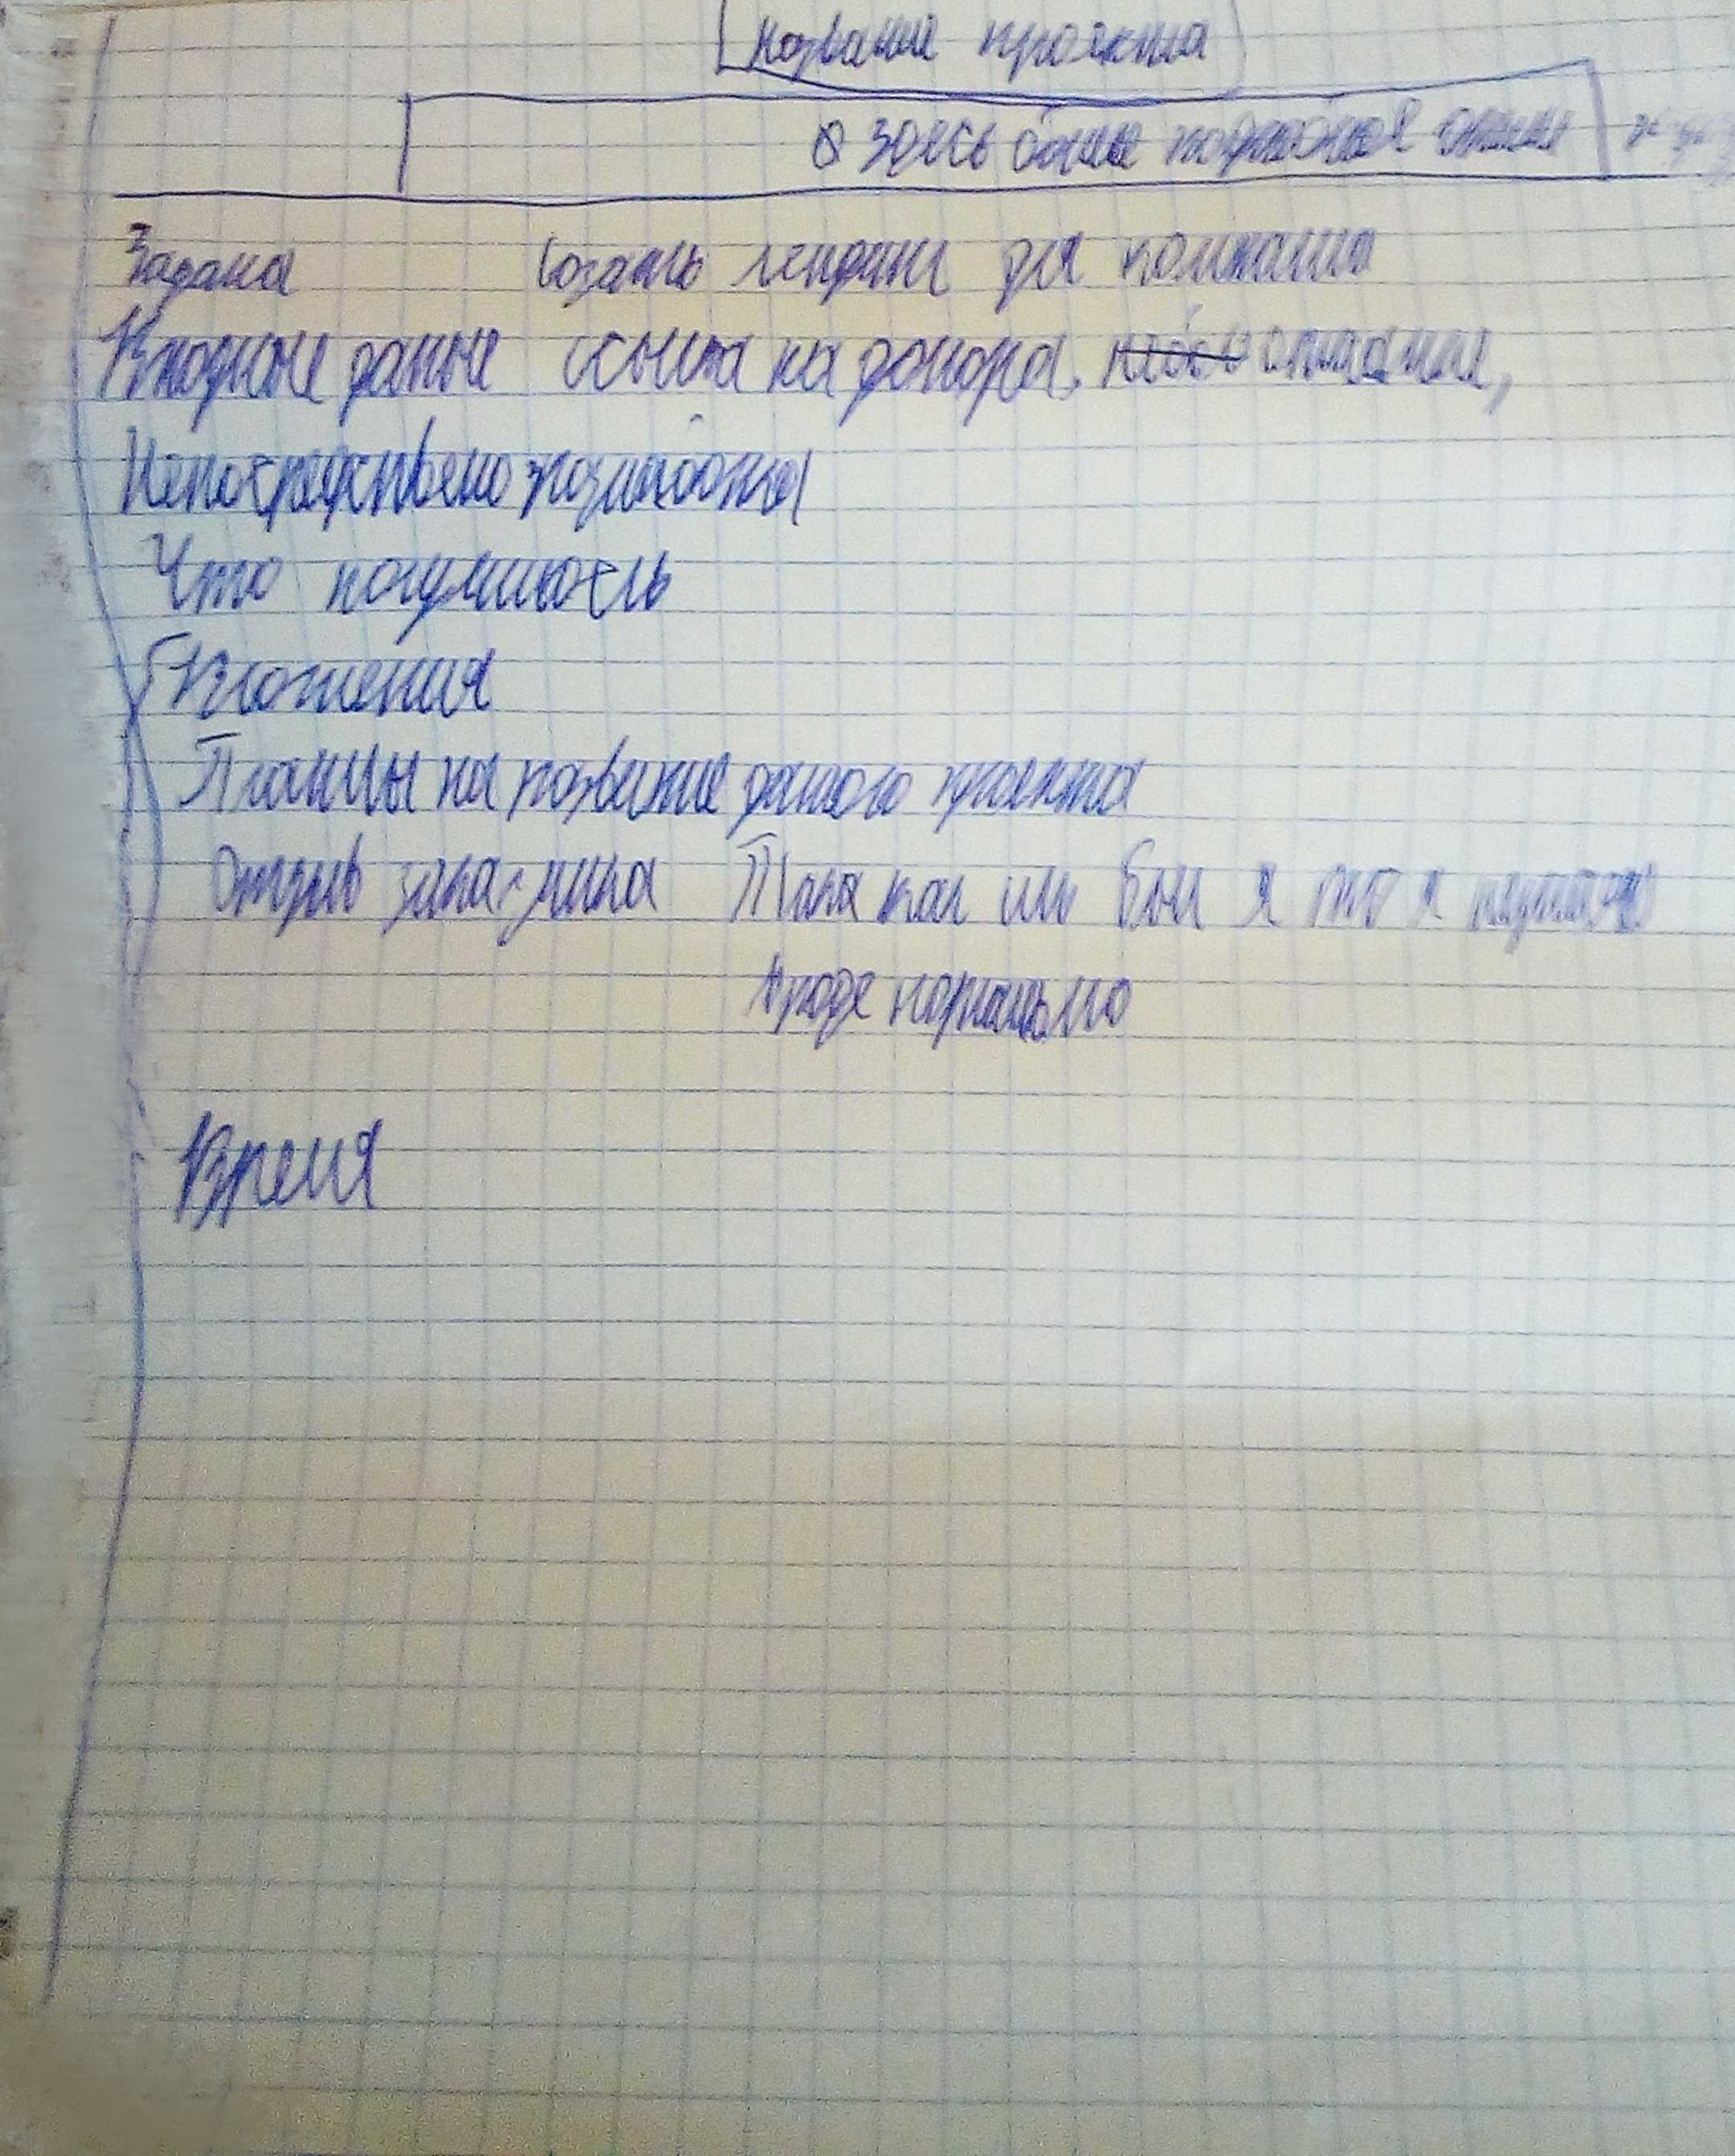 название проекта
Здесь более подробное
Задача создать лендинг для компании
Входные даные ссылка на донора,
Непосредствено разработка
Что получилось
Вложения
Планы на развитие даного проекта
Отзыв заказчика Пока как бы я то я
вроде нормально
Время